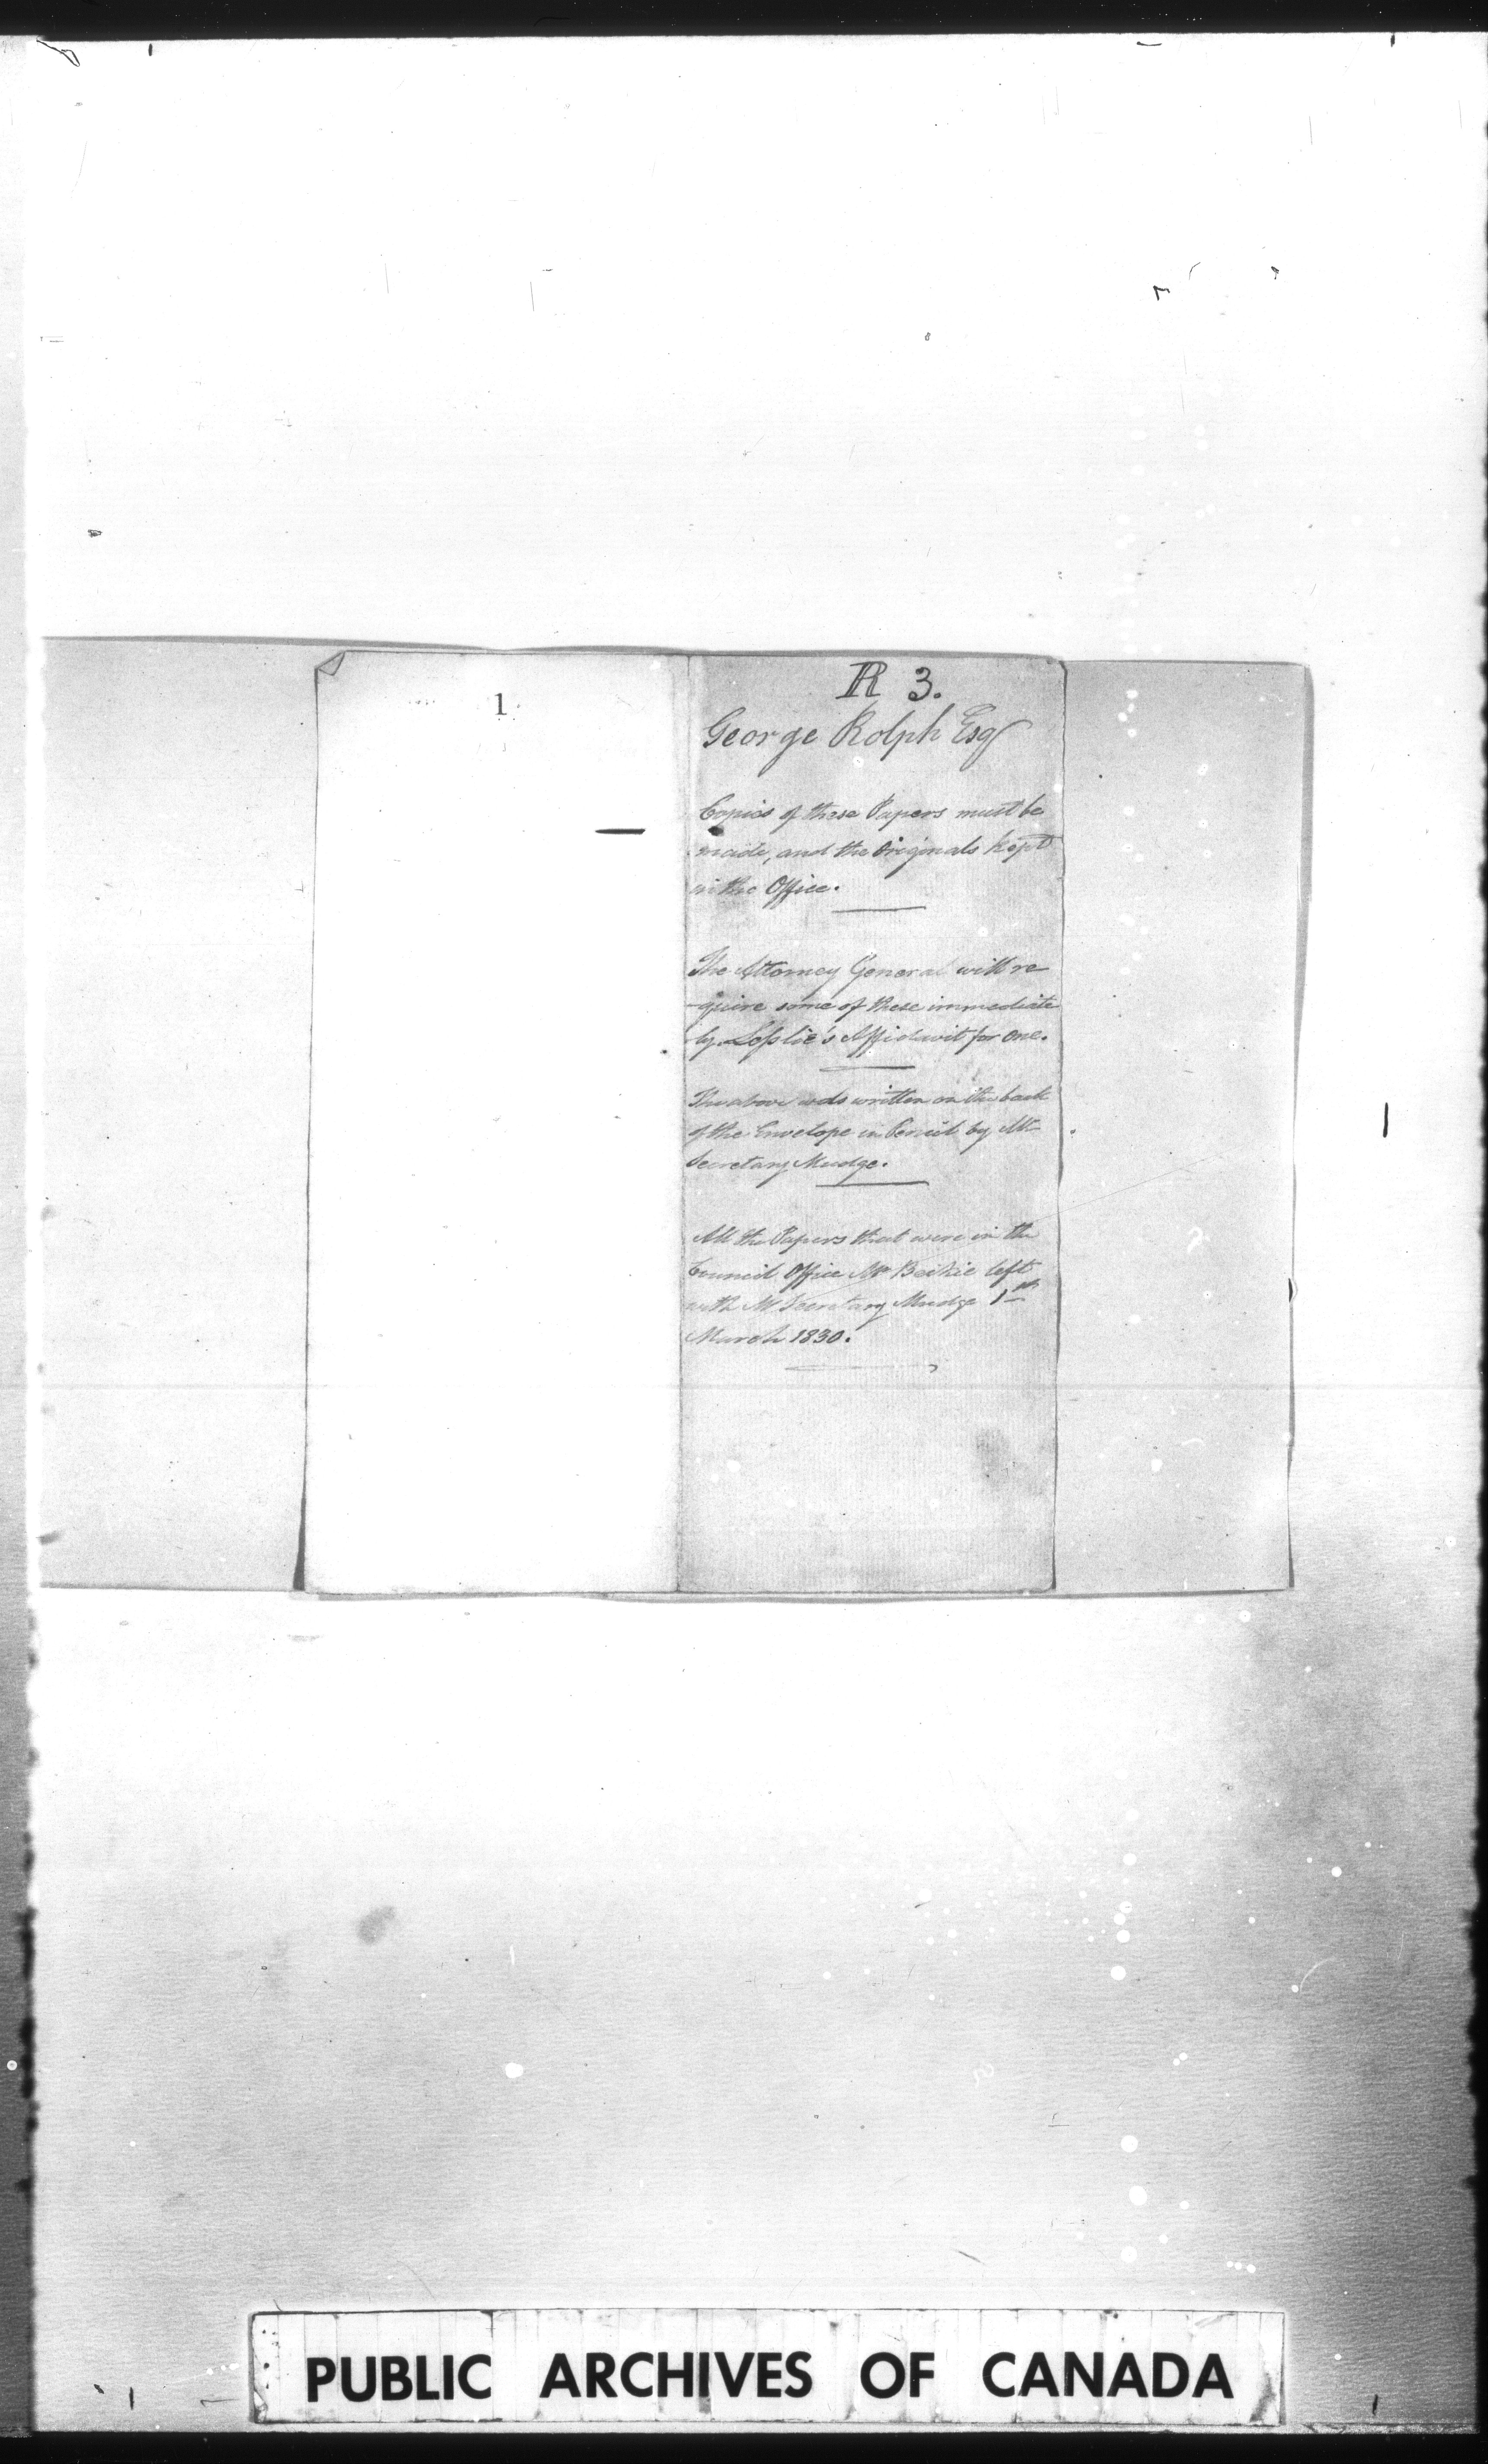 1
R 3.
George Rolph Esq
Copies of these Papers must be
made, and the Originals kept
in the Office.
The Attorney General will re
-quire some of these immediate
ly - Leslie's Affidavit for one.
The above was written on the back
of the Envelope in Pencil by Mr
Secretary Mudge.
All the Papers that were in the
Council Office Mr Beikie left
with Mr Secretary Mudge 1st
March 1830.
PUBLIC ARCHIVES OF CANADA